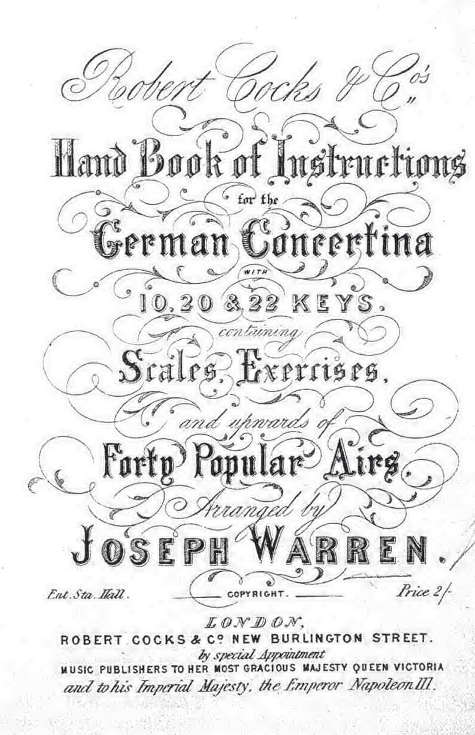 Robert Cocks & Co's
Hand Book of Instructions
for the
German Concertina
WITH
10, 20 & 22 KEYS,
containing
Scales, Exercises,
and upwards of
Forty Popular Airs.
Arranged by
JOSEPH WARREN.
Ent. Sta. Hall. COPYRIGHT. Price 2/-
LONDON,
ROBERT COCKS & CO. NEW BURLINGTON STREET.
by special Appointment
MUSIC PUBLISHERS TO HER MOST GRACIOUS MAJESTY QUEEN VICTORIA
and to his Imperial Majesty, the Emperor Napoleon III.